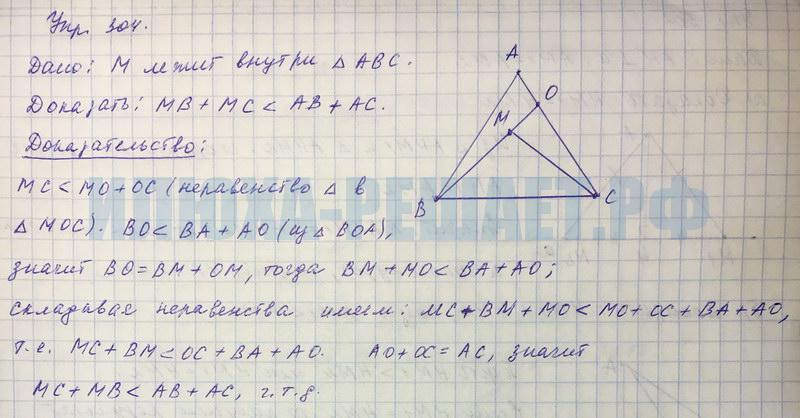 Упр. 304.
Дано: М лежит внутри △ ABC.
Доказать: MB + MC < AB + AC.
Доказательство:
MC < MO + OC (неравенство △ в
△ MOC). BO < BA + AO (из △ BOA),
значит BO = BM + OM, тогда BM + MO < BA + AO;
складывая неравенства имеем: MC + BM + MO < MO + OC + BA + AO,
т.е. MC + BM < OC + BA + AO. AO + OC = AC, значит
MC + MB < AB + AC, ч.т.д.
A
O
M
B
C
ИНОКА-РЕШАЕТ.РФ